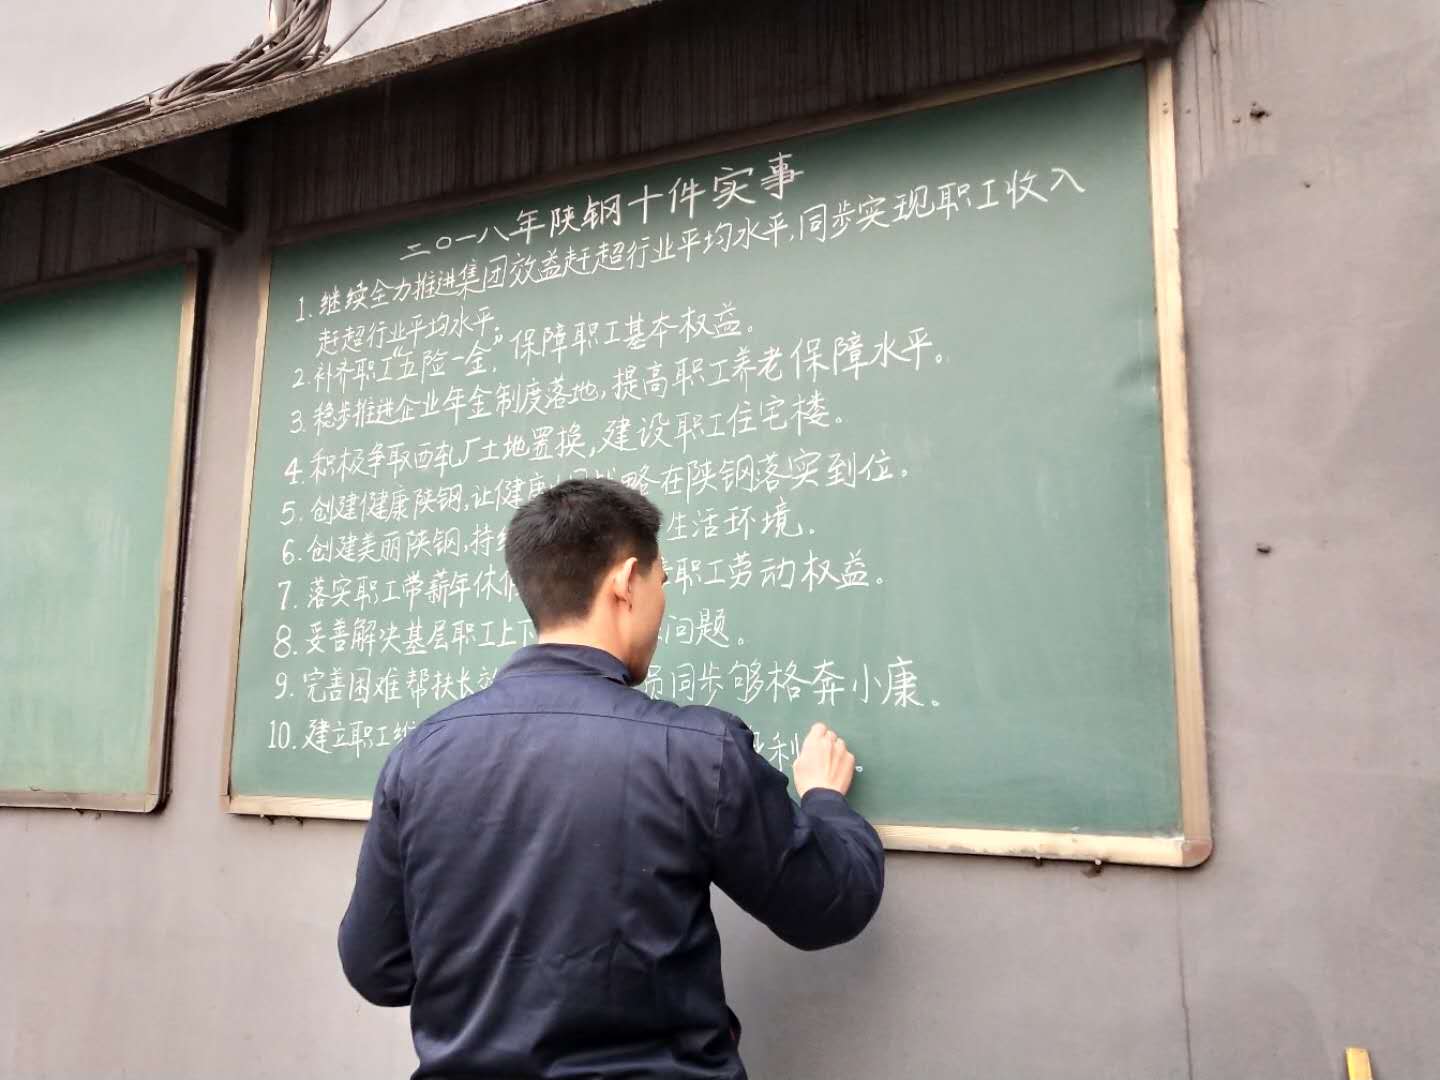 二〇一八年陕钢十件实事
1. 继续全力推进集团效益赶超行业平均水平,同步实现职工收入
赶超行业平均水平;
2. 补齐职工“五险一金”,保障职工基本权益。
3. 稳步推进企业年金制度落地,提高职工养老保障水平。
4. 积极争取西轧厂土地置换,建设职工住宅楼。
5. 创建健康陕钢,让健康 战略在陕钢落实到位。
6. 创建美丽陕钢,持续 生活环境.
7. 落实职工带薪年休假 职工劳动权益。
8. 妥善解决基层职工上下 问题。
9. 完善困难帮扶长效 员同步够格奔小康。
10. 建立职工维 利 。